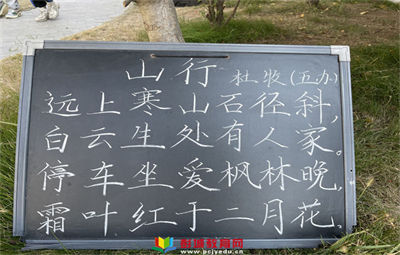 山行 杜牧(五办)
远上寒山石径斜,
白云生处有人家。
停车坐爱枫林晚,
霜叶红于二月花.
www.pcjyedu.cn